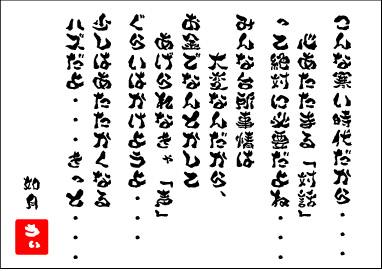 こんな寒い時代だから・・・
心あたたまる「対話」
って絶対に必要だよね・・・
みんな台所事情は
大変なんだから、
お金でなんとかして
あげられなきゃ「声」
ぐらいはかけようよ・・・
少しはあたたかくなる
ハズだよ・・・きっと・・・
如月